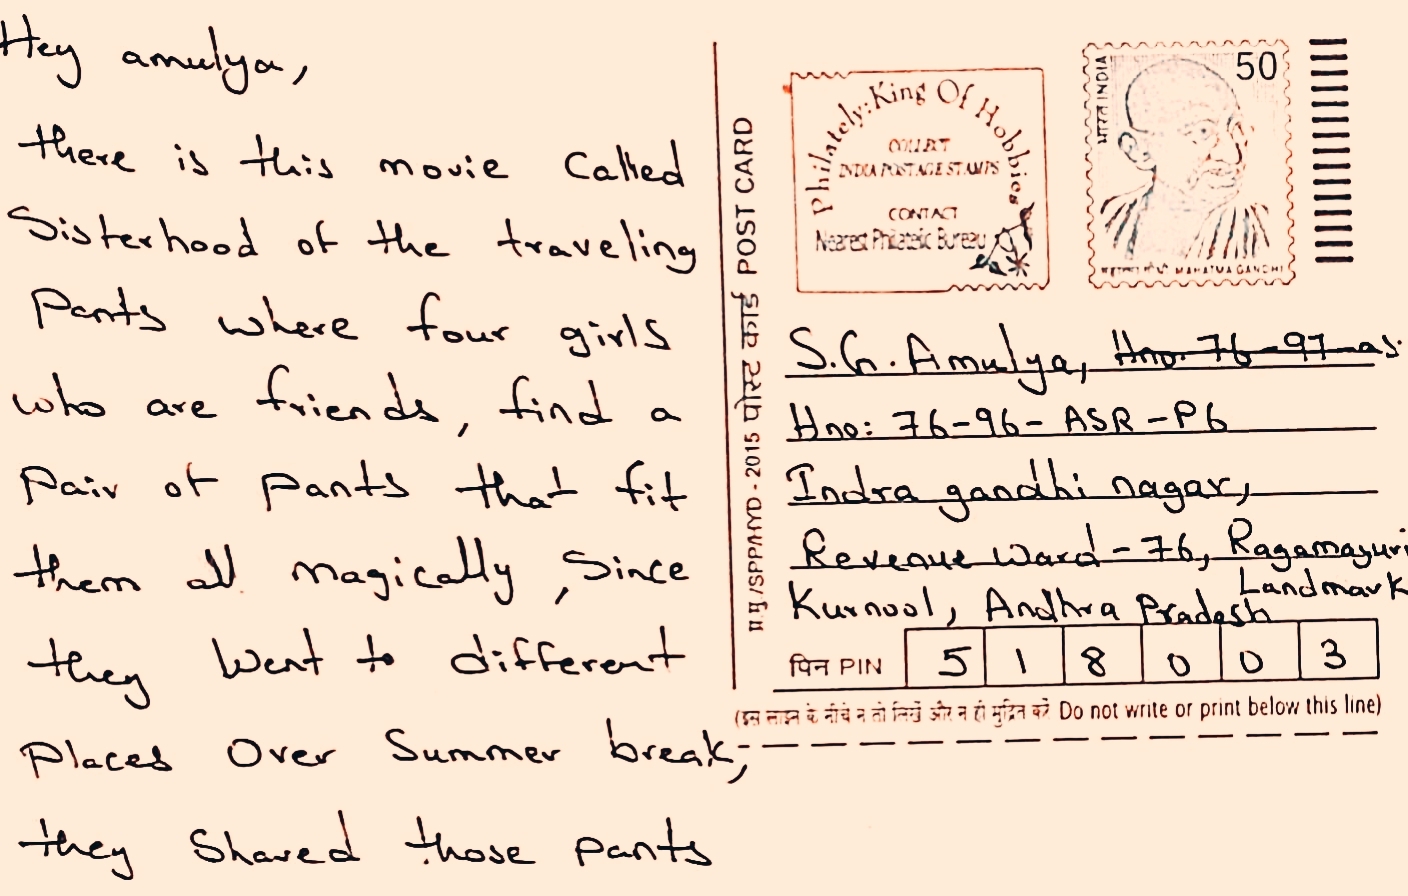 Hey amulya,
there is this movie Called
Sisterhood of the traveling
Pants where four girls
who are friends, find a
Pair of pants that fit
them all magically, Since
they Went to different
Places Over Summer break,
they Shared those pants
म.प्र./SPP/HYD - 2015 पोस्ट कार्ड POST CARD
Philately: King Of Hobbies
COLLECT
INDIA POSTAGE STAMPS
CONTACT
Nearest Philatelic Bureau
50
भारत INDIA
MAHATMA GANDHI
S.G. Amulya, Hno. 76-97-as
Hno: 76-96- ASR -P6
Indra gandhi nagar,
Revenue Ward - 76, Ragamayuri
Landmark
Kurnool, Andhra Pradesh
पिन PIN 5 1 8 0 0 3
(इस लाइन के नीचे न तो लिखें और न ही मुद्रित करें Do not write or print below this line)